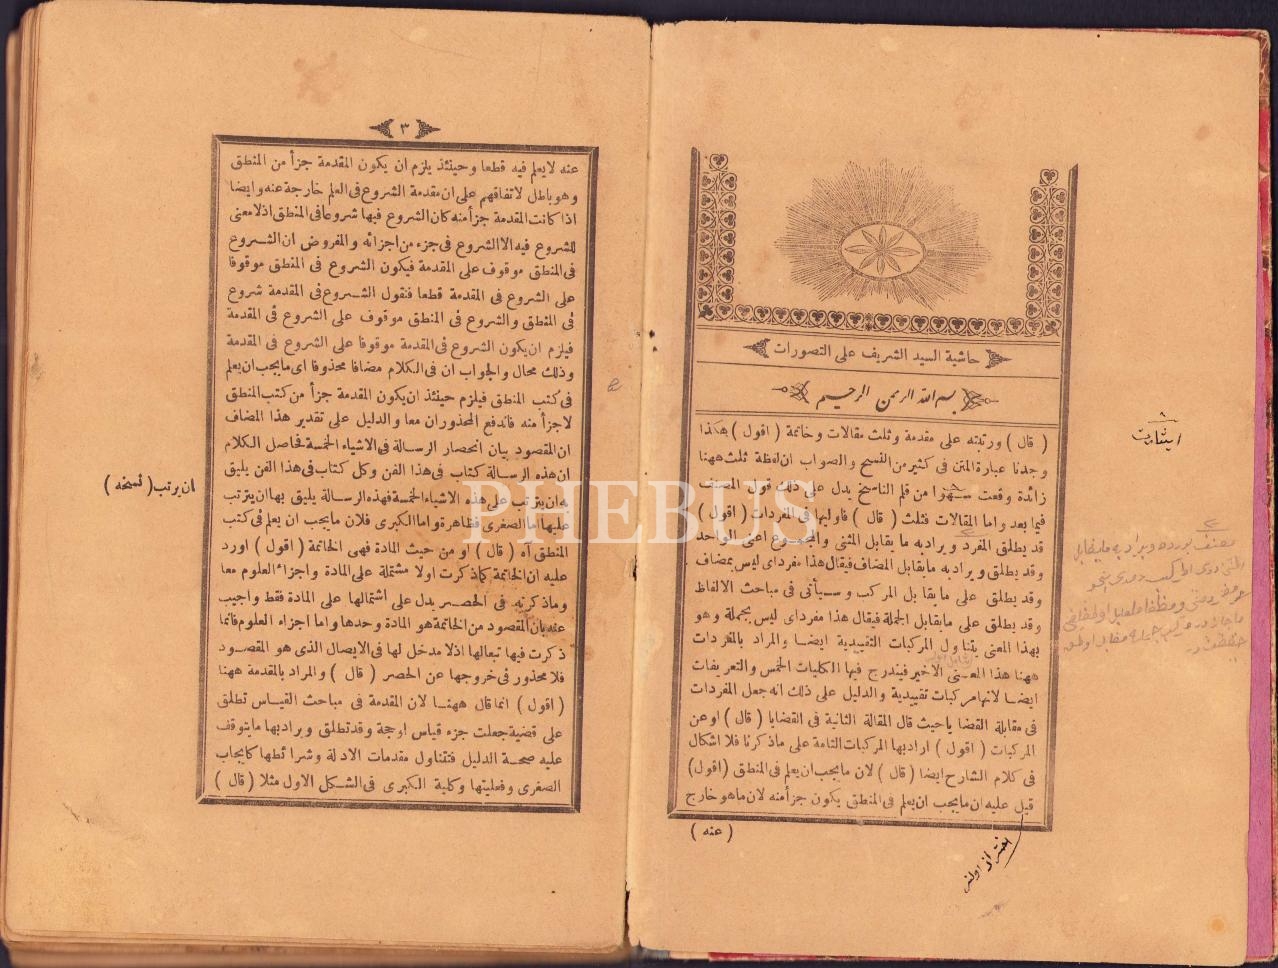 حاشية السيد الشريف على التصورات
بسم الله الرحمن الرحيم
( قال ) ورتبته على مقدمة وثلث مقالات وخاتمة ( اقول ) هكذا
وجدنا عبارة المتن فى كثير من النسخ والصواب ان لفظة ثلث ههنا
زائدة وقعت سهوا من قلم الناسخ يدل على ذلك قول المصنف
فيما بعد واما المقالات فثلث ( قال ) فاوليها فى المفردات ( اقول )
قد يطلق المفرد ويراد به ما يقابل المثنى والمجموع اعنى الواحد
وقد يطلق ويراد به مايقابل المضاف فيقال هذا مفرد اى ليس بمضاف
وقد يطلق على ما يقابل المركب وسيأتى فى مباحث الالفاظ
وقد يطلق على مايقابل الجملة فيقال هذا مفرد اى ليس بجملة وهو
بهذا المعنى يتناول المركبات التقييدية ايضا والمراد بالمفردات
ههنا هذا المعنى الاخير فيندرج فيها الكليات الخمس والتعريفات
ايضا لانها مركبات تقييدية والدليل على ذلك انه جعل المفردات
فى مقابلة القضايا حيث قال المقالة الثانية فى القضايا ( قال ) او عن
المركبات ( اقول ) اراد بها المركبات التامة على ماذكرنا فلا اشكال
فى كلام الشارح ايضا ( قال ) لان مايجب ان يعلم فى المنطق ( اقول )
قيل عليه ان مايجب ان يعلم فى المنطق يكون جزأ منه لان ماهو خارج
( عنه )
٣
عنه لايعلم فيه قطعا وحينئذ يلزم ان يكون المقدمة جزأ من المنطق
وهو باطل لاتفاقهم على ان مقدمة الشروع فى العلم خارجة عنه وايضا
اذا كانت المقدمة جزأ منه كان الشروع فيها شروعا فى المنطق اذلامعنى
للشروع فيه الا الشروع فى جزء من اجزائه والمفروض ان الشروع
فى المنطق موقوف على المقدمة فيكون الشروع فى المنطق موقوفا
على الشروع فى المقدمة قطعا فنقول الشروع فى المقدمة شروع
فى المنطق والشروع فى المنطق موقوف على الشروع فى المقدمة
فيلزم ان يكون الشروع فى المقدمة موقوفا على الشروع فى المقدمة
وذلك محال والجواب ان فى الكلام مضافا محذوفا اى مايجب ان يعلم
فى كتب المنطق فيلزم حينئذ ان يكون المقدمة جزأ من كتب المنطق
لاجزأ منه فاندفع المحذوران معا والدليل على تقدير هذا المضاف
ان المقصود بيان انحصار الرسالة فى الاشياء الخمسة فحاصل الكلام
ان هذه الرسالة كتاب فى هذا الفن وكل كتاب فى هذا الفن يليق
به ان يترتب على هذه الاشياء الخمسة فهذه الرسالة يليق بها ان يترتب
عليها اما الصغرى فظاهرة واما الكبرى فلان مايجب ان يعلم فى كتب
المنطق آه ( قال ) او من حيث المادة فهى الخاتمة ( اقول ) اورد
عليه ان الخاتمة كماذكرت اولا مشتملة على المادة واجزاء العلوم معا
وماذكرته فى الحصر يدل على اشتمالها على المادة فقط واجيب
عنه بان المقصود من الخاتمة هو المادة وحدها واما اجزاء العلوم فانما
ذكرت فيها تبعا لها اذلا مدخل لها فى الايصال الذى هو المقصود
فلا محذور فى خروجها عن الحصر ( قال ) والمراد بالمقدمة ههنا
( اقول ) انما قال ههنا لان المقدمة فى مباحث القياس تطلق
على قضية جعلت جزء قياس اوحجة وقد تطلق ويراد بها مايتوقف
عليه صحة الدليل فتتناول مقدمات الادلة وشرائطها كايجاب
الصغرى وفعليتها وكلية الكبرى فى الشكل الاول مثلا ( قال )
ان يرتب ( نسخه )
PHEBUS